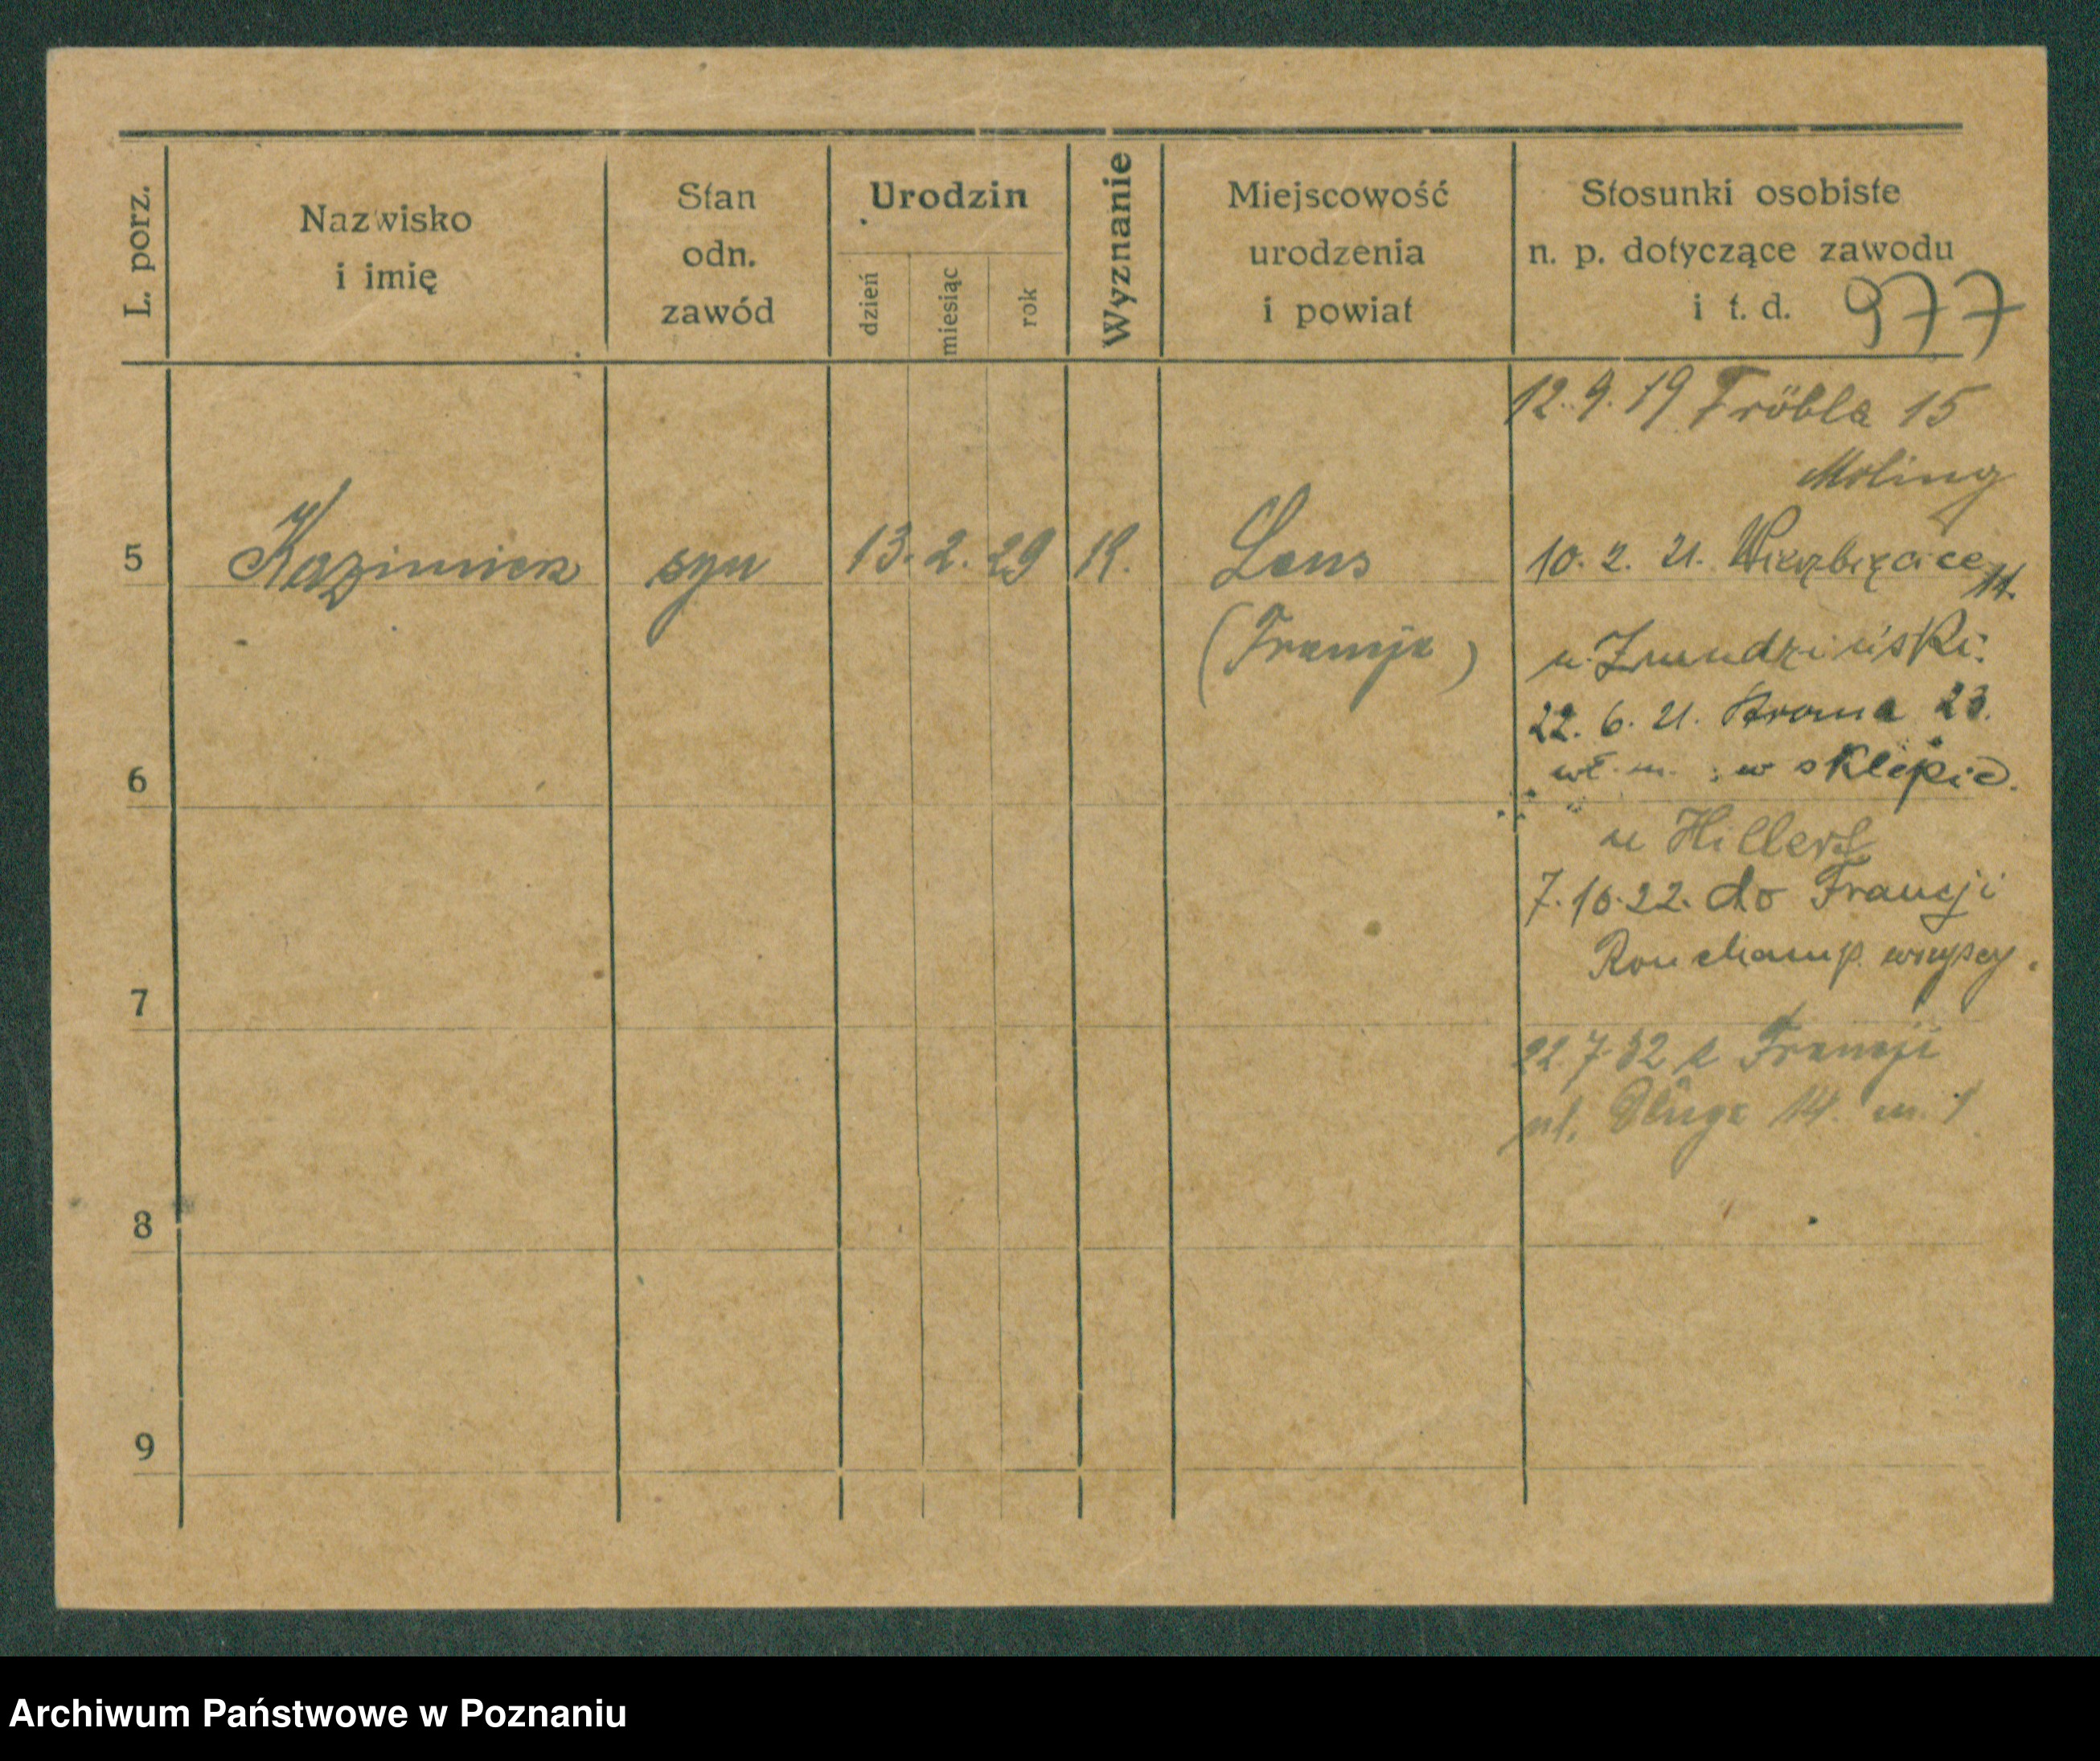 L. porz.
Nazwisko
i imię
Stan
odn.
zawód
Urodzin
dzień
miesiąc
rok
Wyznanie
Miejscowość
urodzenia
i powiat
Stosunki osobiste
n. p. dotyczące zawodu
i t. d. 977
12.9.19 Fröbla 15
Moling
5 Kazimierz syn 13. 2. 29 R. Lens
(Francja)
10. 2. 21. Wierzbięcice 14.
u. Żmudziński.
22. 6. 21. Stroma 23.
wł. m. w sklepie.
6
u Hillert
7.10.22. do Francji
Ronchamp. wszyscy.
7
22.7.32 z Francji
ul. Długa 14. m. 1
8
9
Archiwum Państwowe w Poznaniu